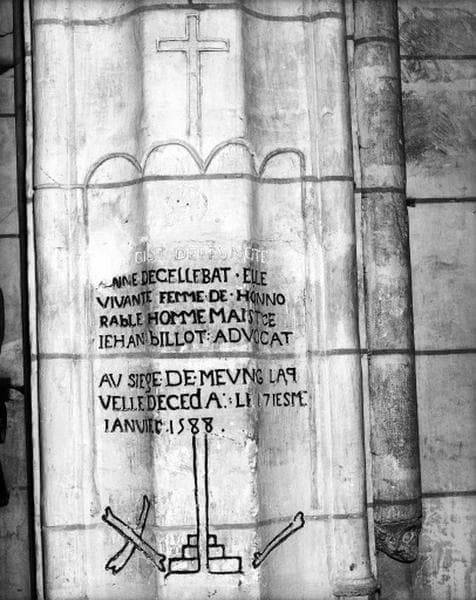 GIST DEFFUNCTE
ANNE DECELLEBAT · ELLE
VIVANTE FEMME · DE · HONNO
RABLE HOMME MAISTRE
IEHAN BILLOT : ADVOCAT
AV SIEGE · DE · MEVNG LAQ
VELLE DECEDA : LE 17IESME
IANVIER . 1588 .